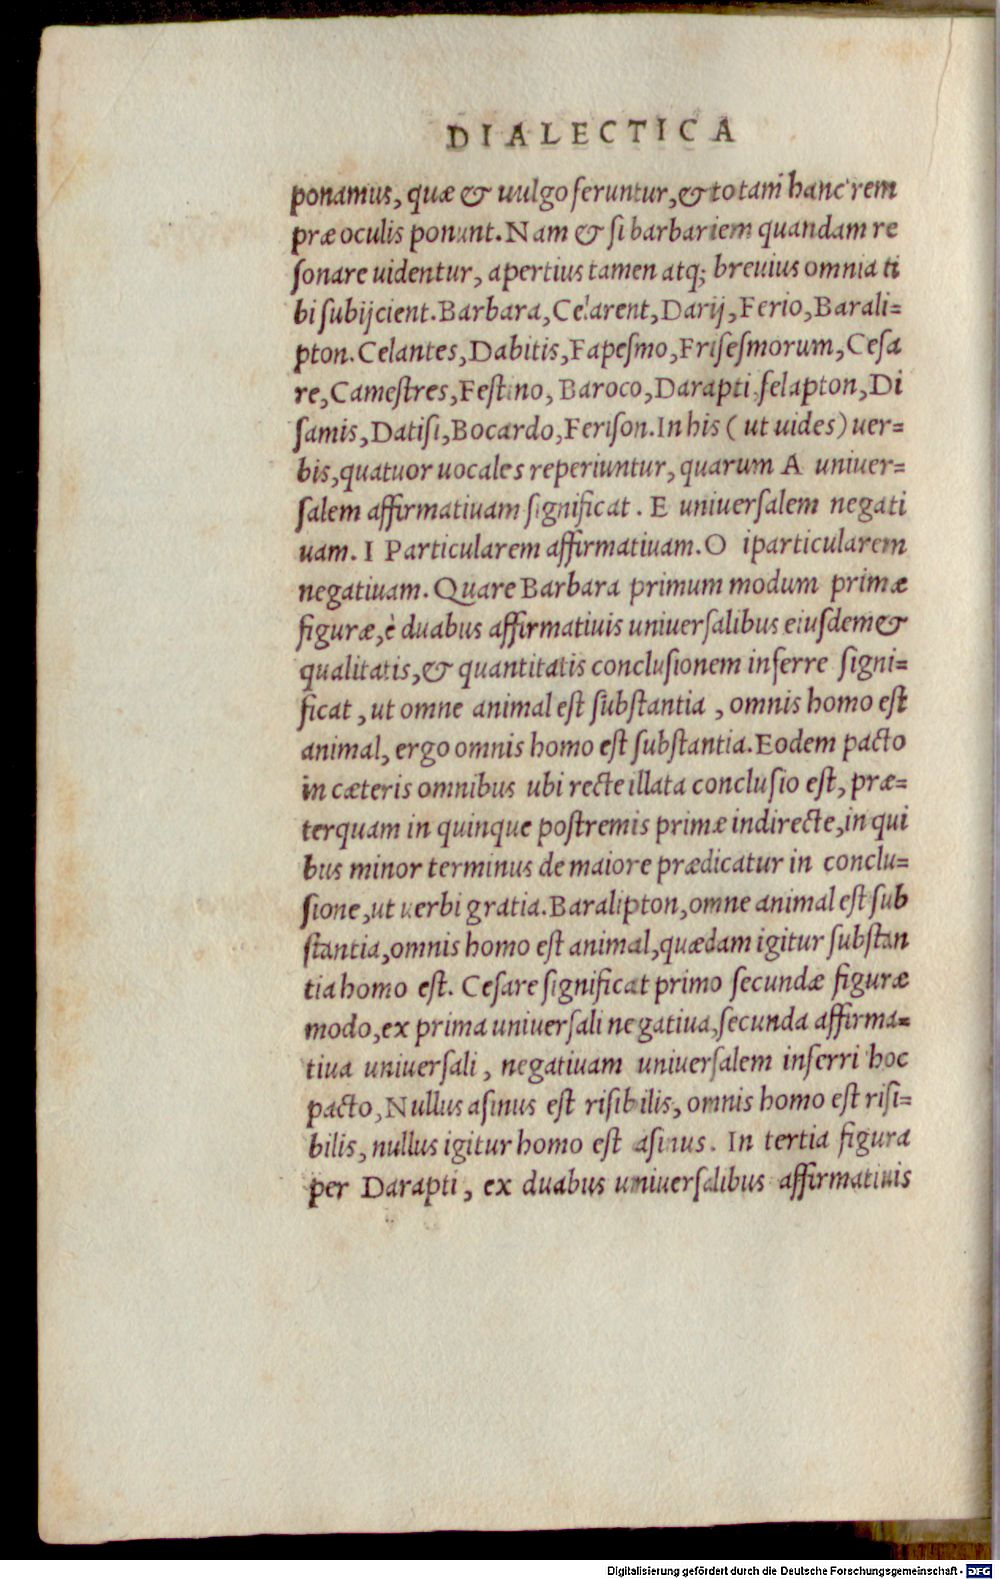 DIALECTICA
ponamus, quæ & uulgo feruntur, & totam hanc rem
præ oculis ponunt. Nam & si barbariem quandam re
sonare uidentur, apertius tamen atq; breuius omnia ti
bi subijcient. Barbara, Celarent, Darij, Ferio, Barali=
pton. Celantes, Dabitis, Fapesmo, Frisesmorum, Cesa
re, Camestres, Festino, Baroco, Darapti, felapton, Di
samis, Datisi, Bocardo, Ferison. In his ( ut uides) uer=
bis, quatuor uocales reperiuntur, quarum A uniuer=
salem affirmatiuam significat. E uniuersalem negati
uam. I Particularem affirmatiuam. O iparticularem
negatiuam. Quare Barbara primum modum primæ
figuræ, è duabus affirmatiuis uniuersalibus eiusdem &
qualitatis, & quantitatis conclusionem inferre signi=
ficat, ut omne animal est substantia, omnis homo est
animal, ergo omnis homo est substantia. Eodem pacto
in cæteris omnibus ubi recte illata conclusio est, præ=
terquam in quinque postremis primæ indirecte, in qui
bus minor terminus de maiore prædicatur in conclu=
sione, ut uerbi gratia. Baralipton, omne animal est sub
stantia, omnis homo est animal, quædam igitur substan
tia homo est. Cesare significat primo secundæ figuræ
modo, ex prima uniuersali negatiua, secunda affirma=
tiua uniuersali, negatiuam uniuersalem inferri hoc
pacto, Nullus asinus est risibilis, omnis homo est risi=
bilis, nullus igitur homo est asinus. In tertia figura
per Darapti, ex duabus uniuersalibus affirmatiuis
Digitalisierung gefördert durch die Deutsche Forschungsgemeinschaft - DFG